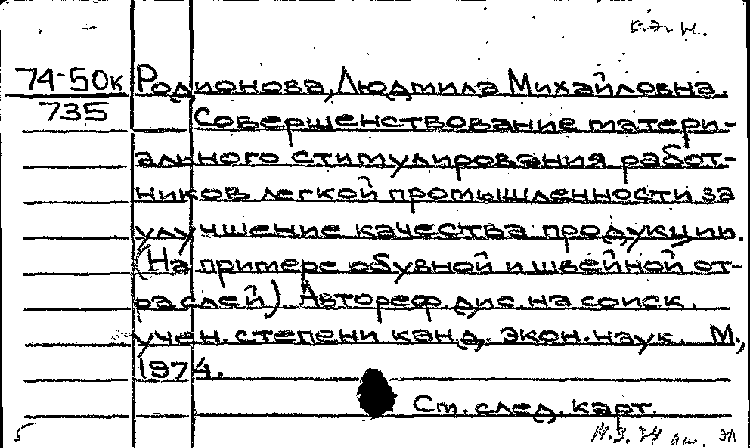 к.э.н.
74-50к Родионова, Людмила Михайловна.
735 Совершенствование матери-
ального стимулирования работ-
ников легкой промышленности за
улучшение качества продукции.
(На примере обувной и швейной от-
раслей). Автореф. дис. на соиск.
учен. степени канд. экон. наук. М.,
1974.
См. след. карт.